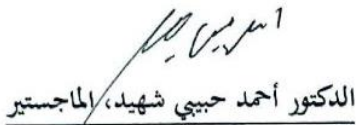 الدكتور أحمد حبيبي شهيد، الماجستير